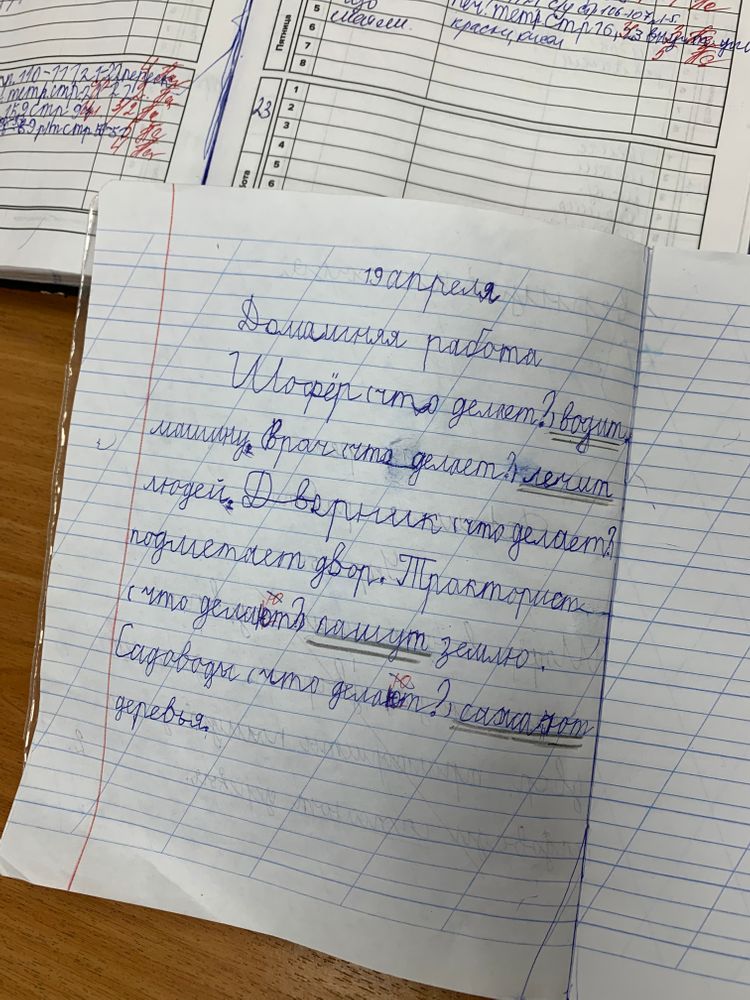 Пятница
5
6
7
8
23
1
2
3
4
5
6
19 апреля
Домашняя работа
Шофёр (что делает?) водит
машину. Врач (что делает?) лечит
людей. Дворник (что делает?
подметает двор. Тракторист
(что делают?) пашут землю.
Садоводы (что делают?) сажают
деревья.